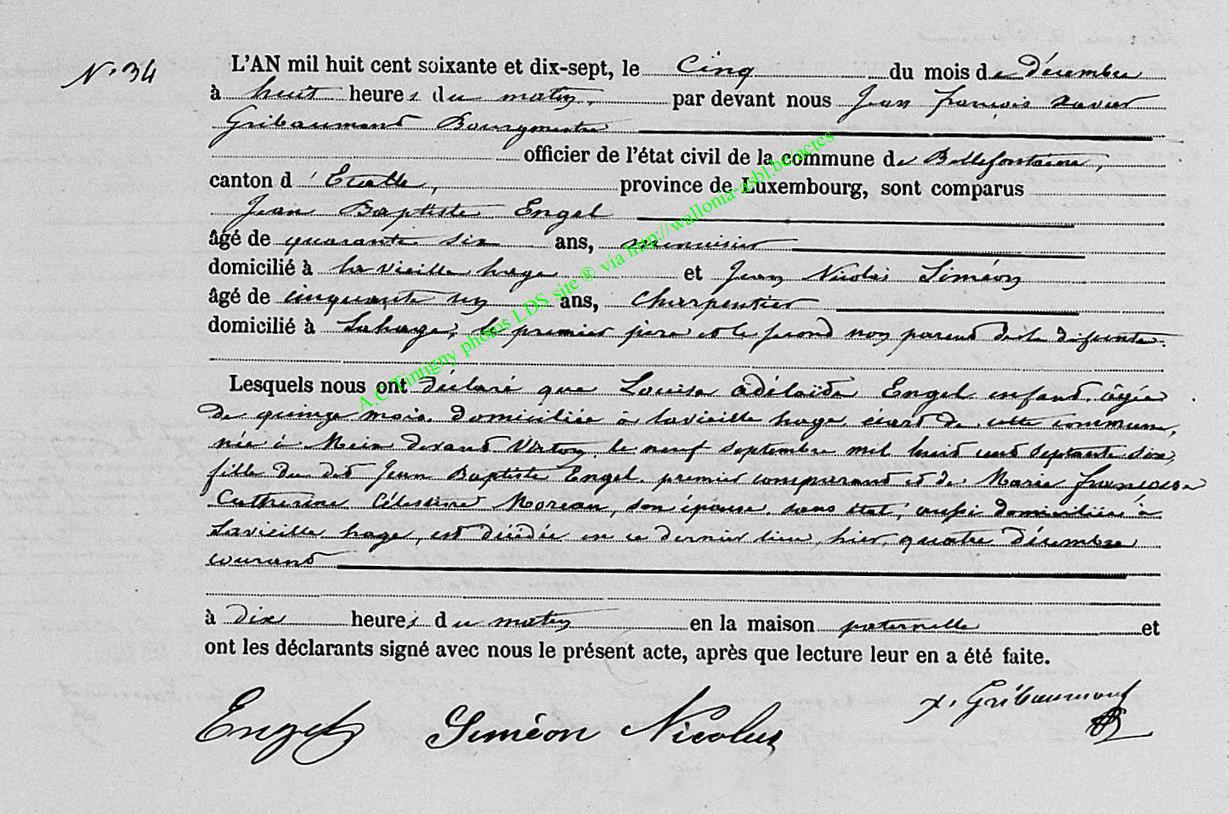 N° 34
L'AN mil huit cent soixante et dix-sept, le Cinq du mois de Décembre
à huit heures du matin, par devant nous Jean françois Xavier
Gribaumont Bourgmestre
officier de l'état civil de la commune de Bellefontaine,
canton d'Etalle, province de Luxembourg, sont comparus
Jean Baptiste Engel
âgé de quarante six ans, menuisier
domicilié à lavieille hage et Jean Nicolas Siméon
âgé de cinquante un ans, Charpentier
domicilié à Lahage, le premier père et le second non parent de la défunte.
Lesquels nous ont déclaré que Louise Adélaïde Engel enfant, âgée
de quinze mois, domiciliée à lavieille hage, écart de cette commune,
née à Meix devant Virton, le neuf septembre mil huit cent septante six,
fille du dit Jean Baptiste Engel premier comparant et de Marie françoise
Catherine Célestine Moreau, son épouse, sans état, aussi domiciliée à
Lavieille hage, est décédée en ce dernier lieu, hier, quatre Décembre
courant
à dix heures du matin en la maison paternelle et
ont les déclarants signé avec nous le présent acte, après que lecture leur en a été faite.
Engel Siméon Nicolas X. Gribaumont
A.C Tintigny photos LDS site ® via http://wallonia-asbl.be/actes